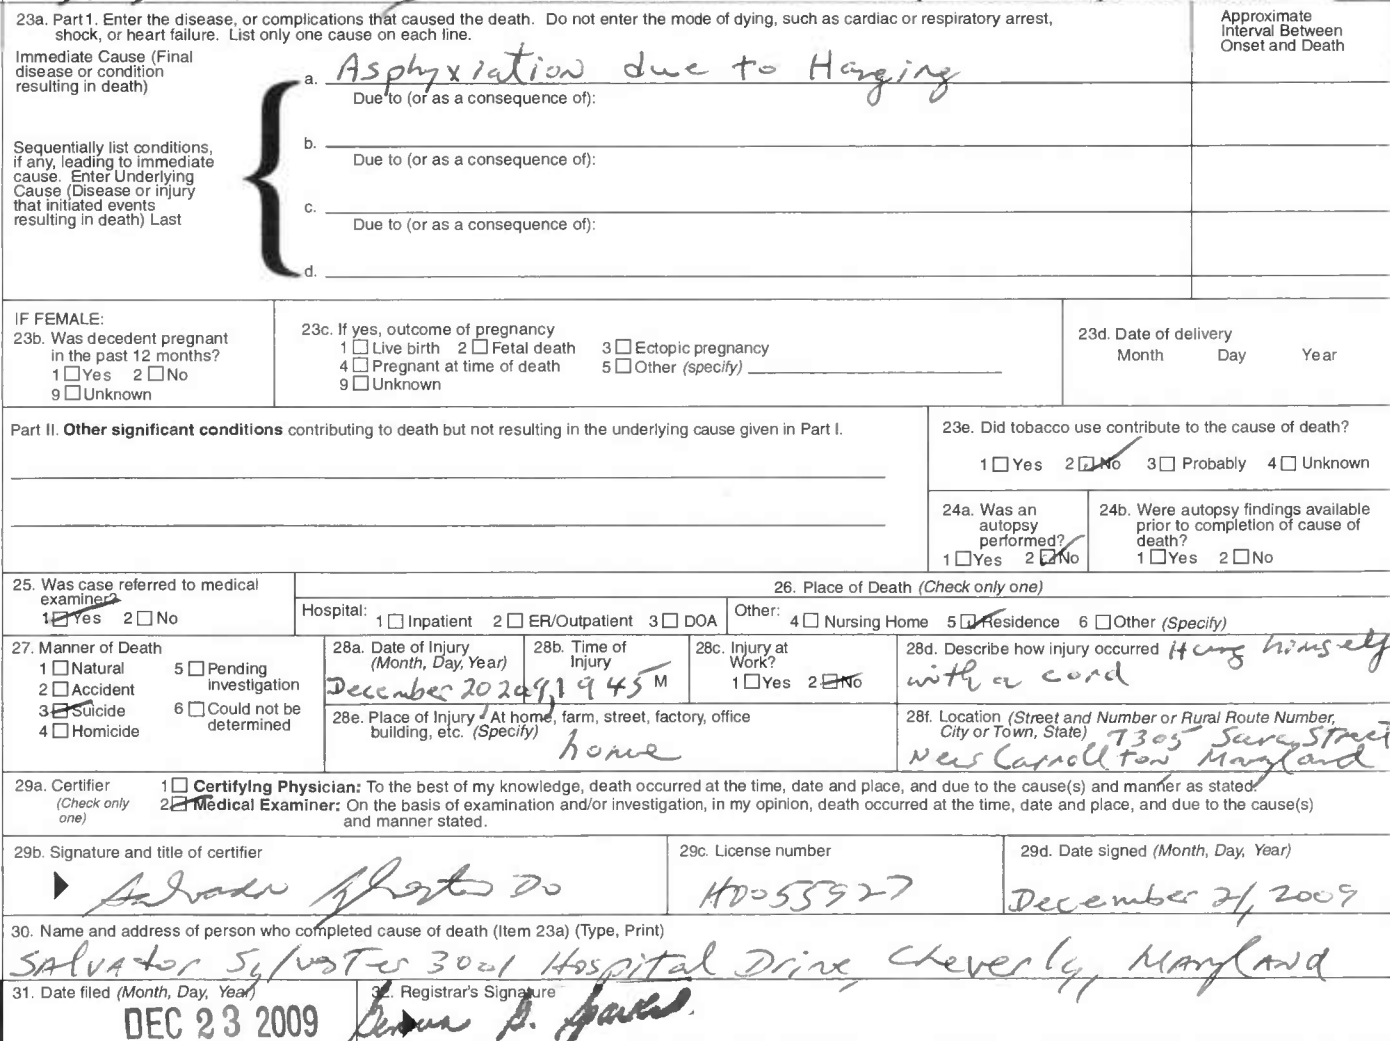 23a. Part 1. Enter the disease, or complications that caused the death. Do not enter the mode of dying, such as cardiac or respiratory arrest,
shock, or heart failure. List only one cause on each line.
Approximate
Interval Between
Onset and Death
Immediate Cause (Final
disease or condition
resulting in death)
a. Asphyxiation due to Hanging
Due to (or as a consequence of):
Sequentially list conditions,
if any, leading to immediate
cause. Enter Underlying
Cause (Disease or injury
that initiated events
resulting in death) Last
b.
Due to (or as a consequence of):
c.
Due to (or as a consequence of):
d.
IF FEMALE:
23b. Was decedent pregnant
in the past 12 months?
1 Yes 2 No
9 Unknown
23c. If yes, outcome of pregnancy
1 Live birth 2 Fetal death 3 Ectopic pregnancy
4 Pregnant at time of death 5 Other (specify)
9 Unknown
23d. Date of delivery
Month Day Year
Part II. Other significant conditions contributing to death but not resulting in the underlying cause given in Part I.
23e. Did tobacco use contribute to the cause of death?
1 Yes 2 No 3 Probably 4 Unknown
24a. Was an
autopsy
performed?
1 Yes 2 No
24b. Were autopsy findings available
prior to completion of cause of
death?
1 Yes 2 No
25. Was case referred to medical
examiner?
1 Yes 2 No
26. Place of Death (Check only one)
Hospital: 1 Inpatient 2 ER/Outpatient 3 DOA
Other: 4 Nursing Home 5 Residence 6 Other (Specify)
27. Manner of Death
1 Natural 5 Pending
investigation
2 Accident
3 Suicide 6 Could not be
determined
4 Homicide
28a. Date of Injury
(Month, Day, Year)
December 20
28b. Time of
Injury
1945 M
28c. Injury at
Work?
1 Yes 2 No
28d. Describe how injury occurred Hung himself
with a cord
28e. Place of Injury At home, farm, street, factory, office
building, etc. (Specify)
home
28f. Location (Street and Number or Rural Route Number,
City or Town, State) 7305 Sara Street
New Carrollton Maryland
29a. Certifier
(Check only
one)
1 Certifying Physician: To the best of my knowledge, death occurred at the time, date and place, and due to the cause(s) and manner as stated.
2 Medical Examiner: On the basis of examination and/or investigation, in my opinion, death occurred at the time, date and place, and due to the cause(s)
and manner stated.
29b. Signature and title of certifier
DO
29c. License number
H0055927
29d. Date signed (Month, Day, Year)
December 21, 2009
30. Name and address of person who completed cause of death (Item 23a) (Type, Print)
SALVATOR SylvesTer 3001 Hospital Drive, Cheverly, MARYLAND
31. Date filed (Month, Day, Year)
DEC 23 2009
32. Registrar's Signature